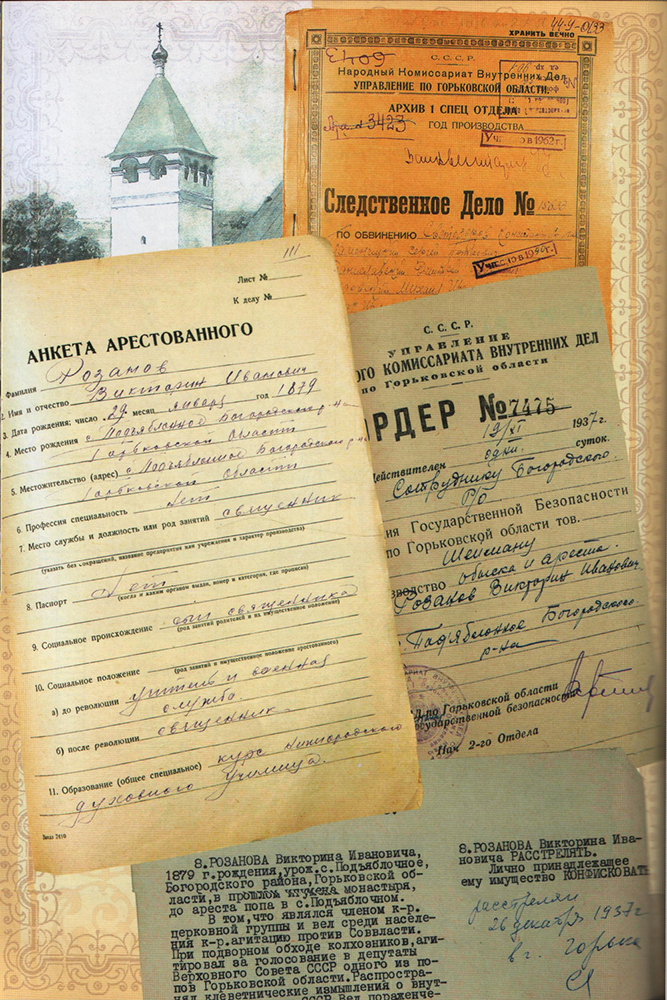 ХРАНИТЬ ВЕЧНО
С. С. С. Р.
Народный Комиссариат Внутренних Дел
УПРАВЛЕНИЕ ПО ГОРЬКОВСКОЙ ОБЛАСТИ.
АРХИВ 1 СПЕЦ ОТДЕЛА
3423 ГОД ПРОИЗВОДСТВА
Следственное Дело №
ПО ОБВИНЕНИЮ
Лист №
К делу №
АНКЕТА АРЕСТОВАННОГО
Фамилия Розанов
2. Имя и отчество Викторин Иванович
3. Дата рождения: число 29 месяц января год 1879
4. Место рождения с. Подъяблоное Богородского р-на
Горьковской области
5. Местожительство (адрес) с. Подъяблоное Богородского р-на
Горьковской области
6. Профессия специальность Нет
7. Место службы и должность или род занятий священник
(указать без сокращений, название предприятия или учреждения и характер производства)
8. Паспорт Нет
(когда и каким органом выдан, номер и категория, где прописан)
9. Социальное происхождение сын священника
(род занятий родителей и их имущественное положение)
10. Социальное положение
(род занятий и имущественное положение арестованного)
а) до революции учитель и военная
служба
б) после революции священник
11. Образование (общее специальное) курс нижегородского
духовного училища.
Заказ 7410
С. С. С. Р.
УПРАВЛЕНИЕ
ОГО КОМИССАРИАТА ВНУТРЕННИХ ДЕЛ
по Горьковской области
РДЕР № 7475
19/XI 1937 г.
Действителен один суток.
Сотруднику Богородского
Р/О
ия Государственной Безопасности
по Горьковской области тов.
Шейману
зводство обыска и ареста
Розанов Викторин Иванович
с. Подъяблонное Богородского
р-на
Д по Горьковской области
осударственной безопасности
Нач 2-го Отдела
8.РОЗАНОВА Викторина Ивановича,
1879 г.рождения,урож.с.Подъяблочное,
Богородского района,Горьковской об-
ласти,в прошлом игумена монастыря,
до ареста попа в с.Подъяблочном.
В том,что являлся членом к-р.
церковной группы и вел среди населе-
ния к-р.агитацию против Соввласти.
При подворном обходе колхозников,аги-
тировал за голосование в депутаты
Верховного Совета СССР одного из по-
пов Горьковской области.Распростра-
нял клеветнические измышления о внут-
СССР.Вел пораженче-
8.РОЗАНОВА Викторина Ива-
новича РАССТРЕЛЯТЬ.
Лично принадлежащее
ему имущество КОНФИСКОВАТЬ
расстрелян
26 декабря 1937 г.
в г. Горьком